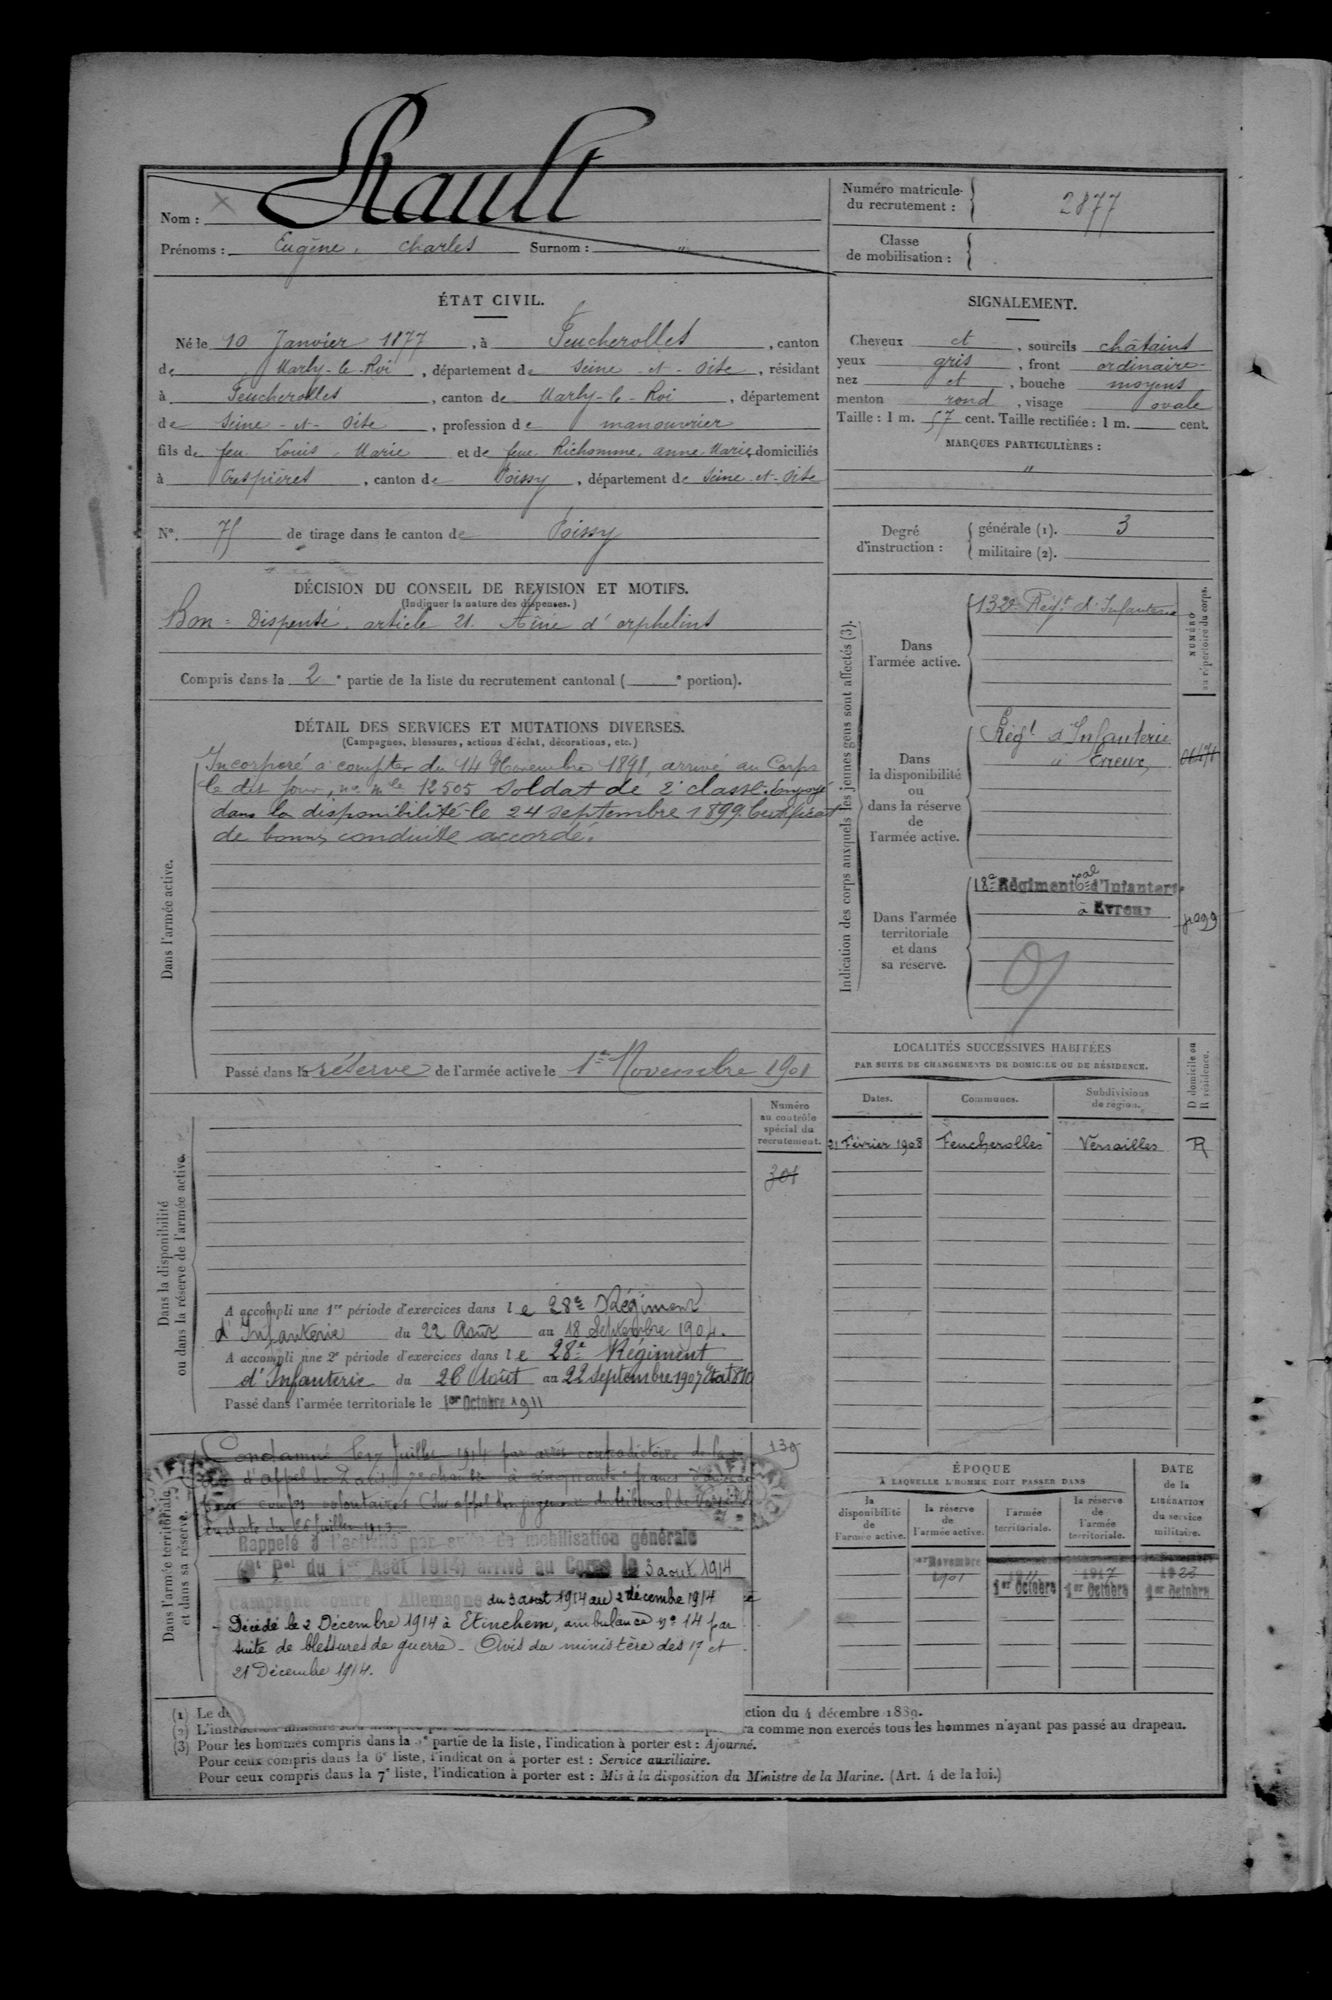 Nom : Rault
Prénoms : Eugène, Charles Surnom : "
Numéro matricule du recrutement : 2877
Classe de mobilisation :
ÉTAT CIVIL.
Né le 10 Janvier 1877, à Feucherolles, canton
de Marly-le-Roi, département de Seine-et-Oise, résidant
à Feucherolles, canton de Marly-le-Roi, département
de Seine-et-Oise, profession de manouvrier
fils de feu Louis Marie et de feue Richomme, Anne Marie, domiciliés
à Crespières, canton de Poissy, département de Seine-et-Oise
N° 75 de tirage dans le canton de Poissy
SIGNALEMENT.
Cheveux et, sourcils châtains
yeux gris, front ordinaire
nez et, bouche moyens
menton rond, visage ovale
Taille : 1 m. 57 cent. Taille rectifiée : 1 m. cent.
MARQUES PARTICULIÈRES :
"
Degré d'instruction :
générale (1). 3
militaire (2).
DÉCISION DU CONSEIL DE REVISION ET MOTIFS.
(Indiquer la nature des dispenses.)
Bon = Dispensé, article 21. Aîné d'orphelins
Compris dans la 2e partie de la liste du recrutement cantonal ( e portion).
DÉTAIL DES SERVICES ET MUTATIONS DIVERSES.
(Campagnes, blessures, actions d'éclat, décorations, etc.)
Dans l'armée active.
Incorporé à compter du 14 Novembre 1898, arrivé au Corps
le dit jour, no mle 12505 soldat de 2e classe. Envoyé
dans la disponibilité le 24 septembre 1899. Certificat
de bonne conduite accordé.
Passé dans la réserve de l'armée active le 1er Novembre 1901
Indication des corps auxquels les jeunes gens sont affectés (3).
NUMÉRO au répertoire du corps.
Dans l'armée active.
132e Régt d'Infanterie
Dans la disponibilité ou dans la réserve de l'armée active.
Régt d'Infanterie
à Evreux
Dans l'armée territoriale et dans sa réserve.
18e Régiment Tal d'Infanterie
à Evreux
LOCALITÉS SUCCESSIVES HABITÉES
PAR SUITE DE CHANGEMENTS DE DOMICILE OU DE RÉSIDENCE.
Dates. Communes. Subdivisions de région. D domicile ou R résidence.
21 Février 1908 Feucherolles Versailles R
Dans la disponibilité ou dans la réserve de l'armée active.
Numéro au contrôle spécial du recrutement.
301
A accompli une 1re période d'exercices dans le 28e Régiment
d'Infanterie du 22 Août au 18 Septembre 1904.
A accompli une 2e période d'exercices dans le 28e Régiment
d'Infanterie du 26 Août au 22 septembre 1907
Passé dans l'armée territoriale le 1er Octobre 1911
Dans l'armée territoriale et dans sa réserve.
139
Condamné le 17 Juillet 1914 par arrêt contradictoire de la
d'appel de Paris, à cinquante francs d'amende
coups volontaires (Sur appel d'un jugement du tribunal de Versailles
en date du 26 Juillet 1913
Rappelé à l'activité par suite de mobilisation générale
(Dt Pel du 1er Août 1914) arrivé au Corps le 3 août 1914
Campagne contre l'Allemagne du 3 août 1914 au 2 décembre 1914
- Décédé le 2 Décembre 1914 à Etinehem, ambulance no 14 par
suite de blessures de guerre - Avis du ministère des 17 et
21 Décembre 1914.
ÉPOQUE
À LAQUELLE L'HOMME DOIT PASSER DANS
la disponibilité de l'armée active. la réserve de l'armée active. l'armée territoriale. la réserve de l'armée territoriale.
DATE de la LIBÉRATION du service militaire.
1er Novembre 1901
1911 1er Octobre
1917 1er Octobre
1923 1er Octobre
(1) Le dé
ction du 4 décembre 1889.
(2) L'instr
ra comme non exercés tous les hommes n'ayant pas passé au drapeau.
(3) Pour les hommes compris dans la 5e partie de la liste, l'indication à porter est : Ajourné.
Pour ceux compris dans la 6e liste, l'indication à porter est : Service auxiliaire.
Pour ceux compris dans la 7e liste, l'indication à porter est : Mis à la disposition du Ministre de la Marine. (Art. 4 de la loi.)